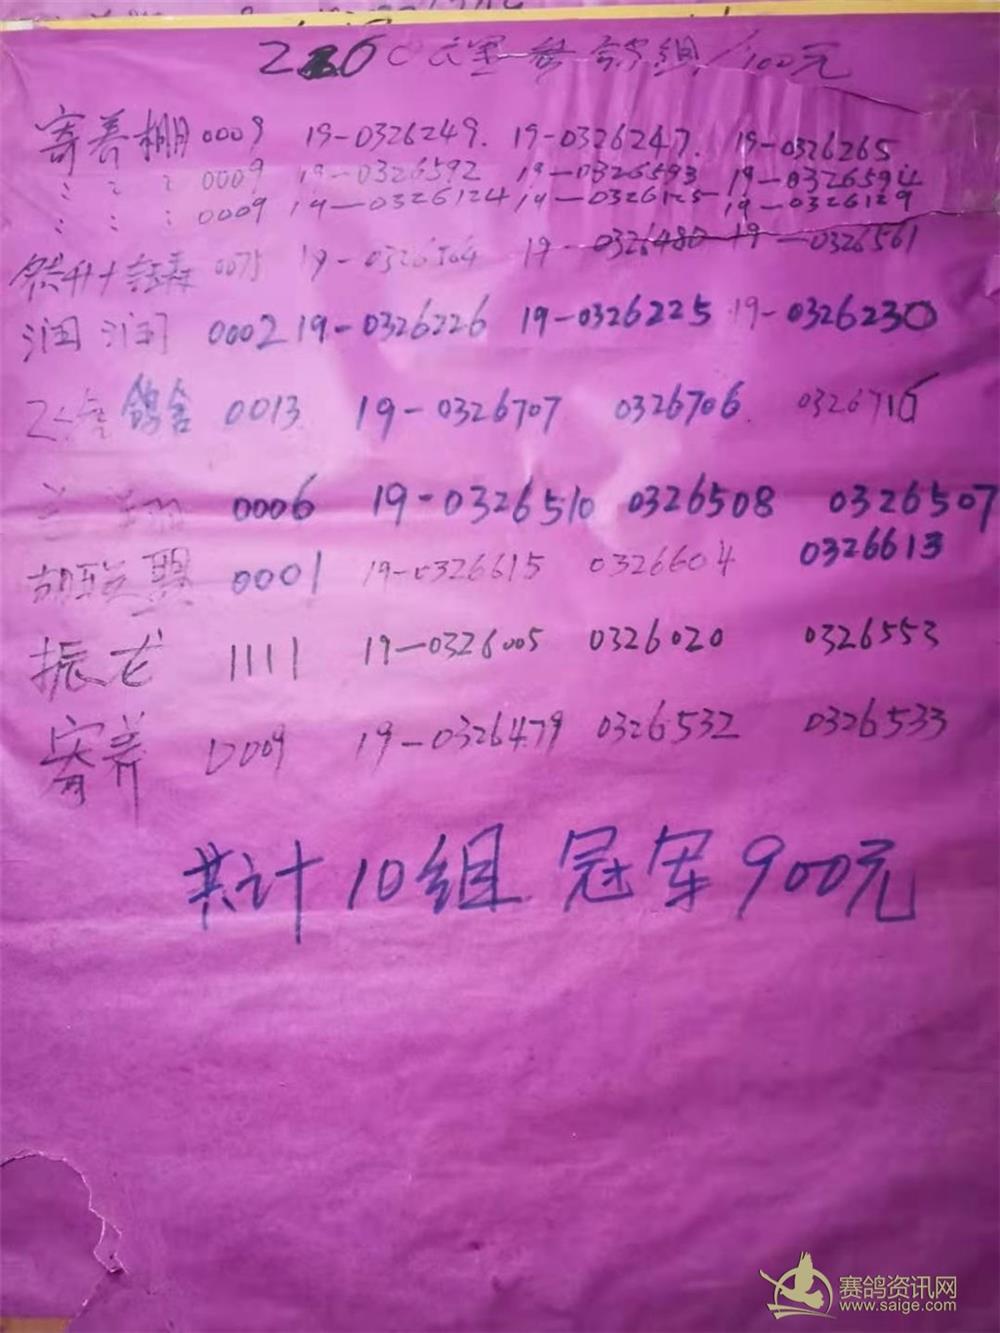 260公里 鸽组/100元
寄养棚 0009 19-0326249. 19-0326247. 19-0326265
〃 〃 〃 0009 19-0326592 19-0326593 19-0326594
〃 〃 〃 0009 19-0326124 19-0326125 19-0326129
0075 19-0326564 19-0326480 19-0326561
润润 0002 19-0326226 19-0326225 19-0326230
鸽舍 0013 19-0326707 0326706. 0326716
0006 19-0326510 0326508 0326507
胡联盟 0001 19-0326615 0326604 0326613
振龙 1111 19-0326005 0326020 0326553
寄养 0009 19-0326479 0326532 0326533
共计10组 冠军900元
赛鸽资讯网
www.saige.com